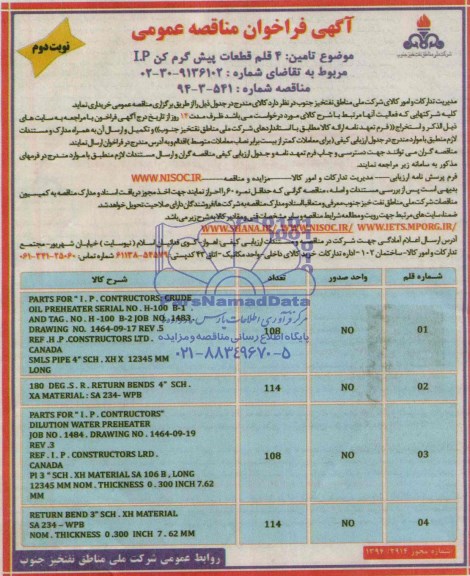 آگهی فراخوان مناقصه عمومی
نوبت دوم
شرکت ملی مناطق نفتخیز جنوب
موضوع تامین: ۴ قلم قطعات پیش گرم کن I.P
مربوط به تقاضای شماره : ۹۱۳۶۱۰۲-۳۰-۰۲
مناقصه شماره : ۵۴۱-۳-۹۴
مدیریت تدارکات و امور کالای شرکت ملی مناطق نفتخیز جنوب در نظر دارد کالای مندرج در جدول ذیل را از طریق برگزاری مناقصه عمومی خریداری نماید.
کلیه شرکتهایی که فعالیت آنها مرتبط با شرح کالای مورد درخواست می باشد ظرف مدت ۱۴ روز از تاریخ درج آگهی فراخوان با مراجعه به سایت های
ذیل الذکر و استخراج (( فرم تعهد نامه ارائه کالا مطابق با استانداردهای شرکت ملی مناطق نفتخیز جنوب)) و تکمیل و ارسال آن به همراه مدارک و مستندات
مذکور به سامانه زیر مراجعه نمایند.
فرم پرسش نامه ارزیابی ---- مدیریت تدارکات و امور کالا ---- مزایده و مناقصه ---- WWW.NISOC.IR
WWW.SHANA.IR/ .WWW.NISOC.IR/ WWW.IETS.MPORG.IR/
شماره قلم	واحد صدور	تعداد	شرح کالا
01	NO	108	PARTS FOR " I . P . CONTRUCTORS, CRUDE
OIL PREHEATER SERIAL NO . H-100 B-1
AND TAG. NO . H- 100 B-2 JOB NO .1483
DRAWING NO. 1464-09-17 REV .5
REF .H .P .CONSTRUCTORS LTD .
CANADA
SMLS PIPE 4" SCH . XH X 12345 MM
LONG
02	NO	114	180 DEG .S . R . RETURN BENDS 4" SCH .
XA MATERIAL : SA 234- WPB
03	NO	108	PARTS FOR " I . P . CONTRUCTORS"
DILUTION WATER PREHEATER
JOB NO . 1484 . DRAWING NO . 1464-09-19
REV .3
REF . I . P . CONSTRUCTORS LRD .
CANADA
PI 3 " SCH . XH MATERIAL SA 106 B , LONG
12345 MM NOM . THICKNESS 0 .300 INCH 7.62
MM
04	NO	114	RETURN BEND 3" SCH . XH MATERIAL
SA 234 – WPB
NOM . THICKNESS 0.300 INCH 7 . 62 MM
ParsNamadData
مرکز فرآوری اطلاعات پارس نماد داده ها
پایگاه اطلاع رسانی مناقصه و مزایده
۰۲۱-۸۸۳۴۹۶۷۰-۵
شماره مجوز ۱۳۹۴/۲۹۱۴
روابط عمومی شرکت ملی مناطق نفتخیز جنوب